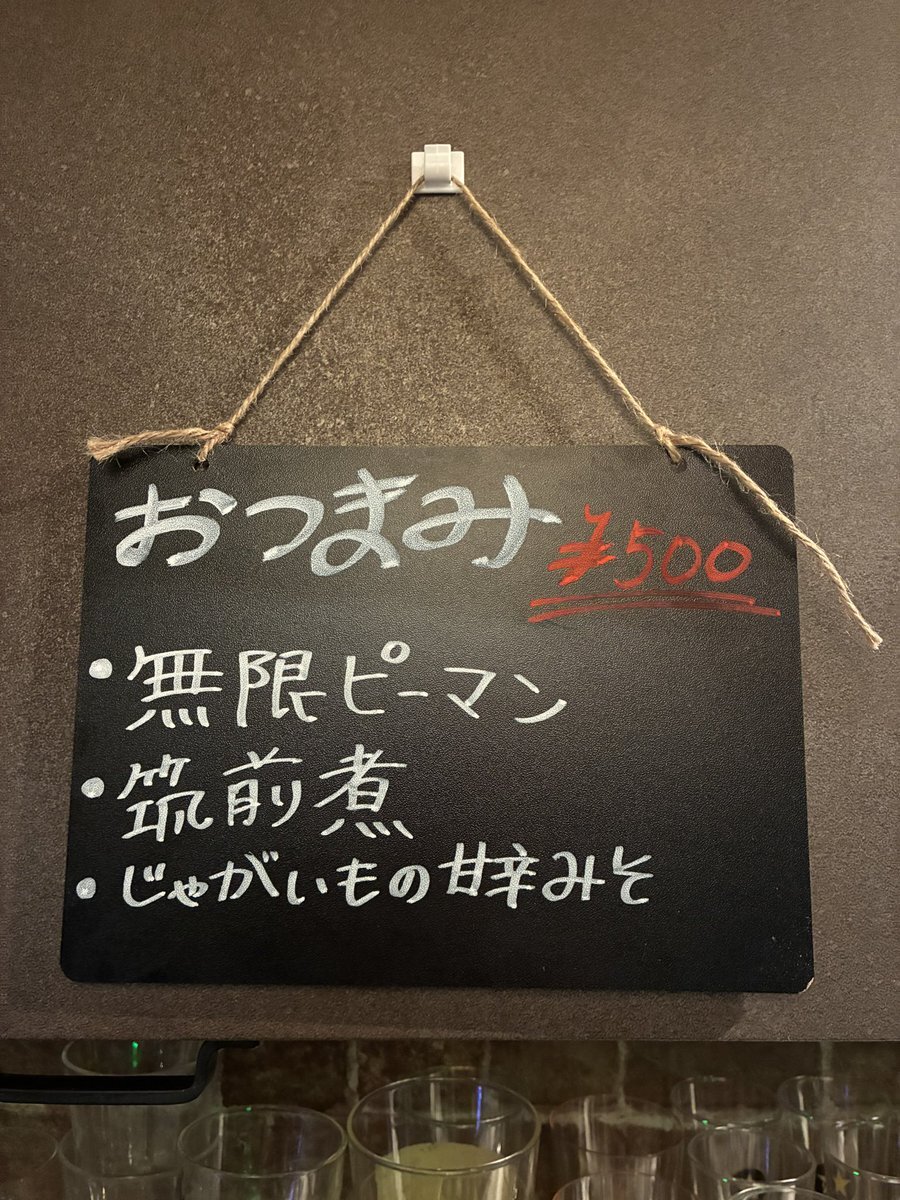 おつまみ ¥500
・無限ピーマン
・筑前煮
・じゃがいもの甘辛みそ